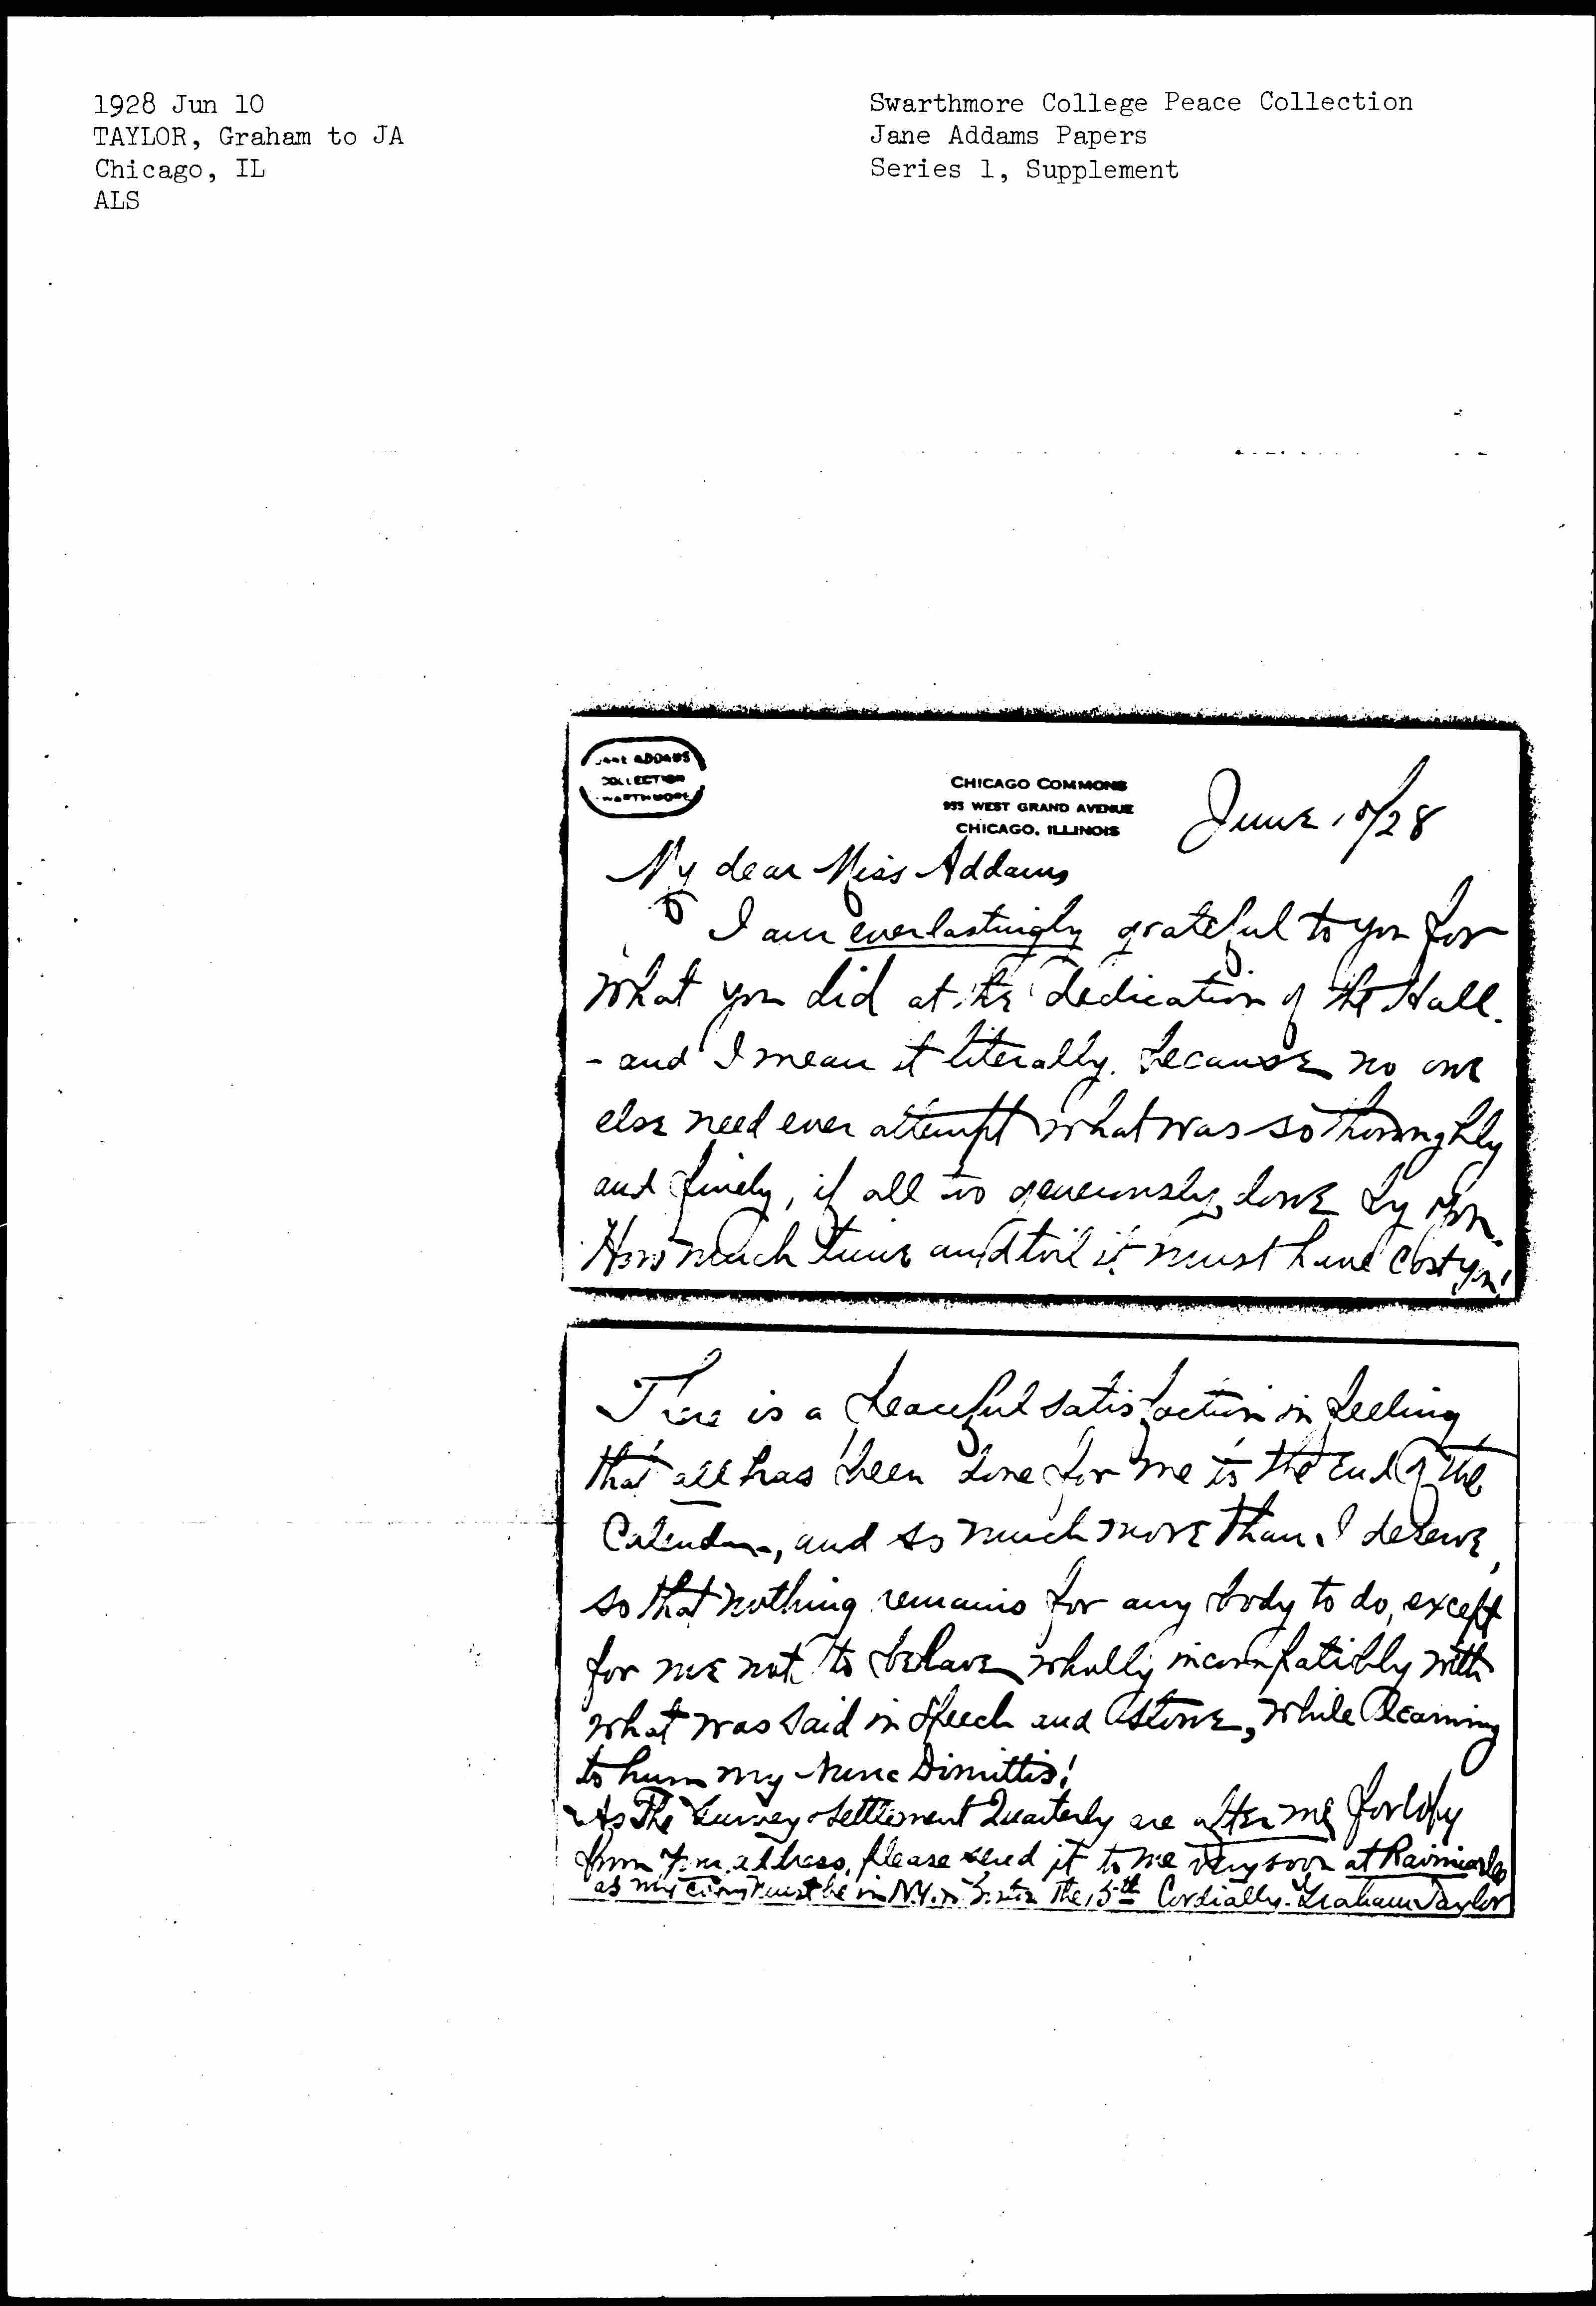 1928 Jun 10
TAYLOR, Graham to JA
Chicago, IL
ALS
Swarthmore College Peace Collection
Jane Addams Papers
Series 1, Supplement
JANE ADDAMS
COLLECTION
SWARTHMORE
CHICAGO COMMONS
955 WEST GRAND AVENUE
CHICAGO, ILLINOIS
June 10/28
My dear Miss Addams
I am everlastingly grateful to you for
what you did at the dedication of the Hall.
- and I mean it literally. because no one
else need ever attempt what was so thoroughly
and finely, if all too generously, done by you.
How much time and toil it must have cost you!
There is a peaceful satisfaction in feeling
that all has been done for me to the end of the
Calendar, and so much more than I deserve,
so that nothing remains for any body to do, except
for me not to behave wholly incompatibly with
what was said in speech and stone, while learning
to hum my Nunc Dimittis!
As The Survey Settlement Quarterly are after me for copy
from your address, please send it to me very soon at Ravinia
as my copy must be in N.Y. the 15th Cordially. Graham Taylor